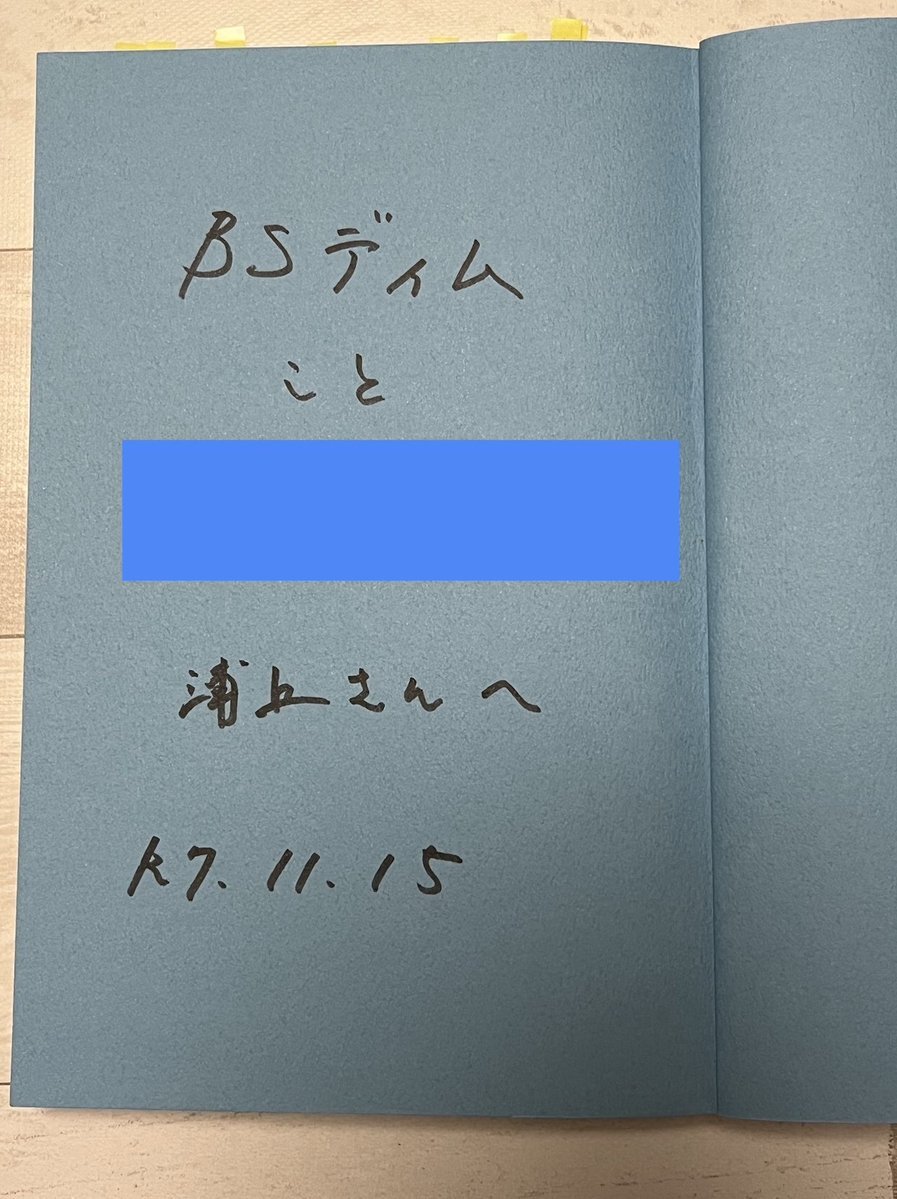 BSディム
こと
浦上さんへ
R7.11.15